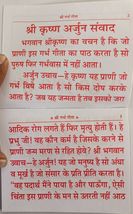 श्री गर्भ गीता
श्री कृष्ण अर्जुन संवाद
भगवान श्रीकृष्ण का वचन है कि जो
प्राणी इस गर्भ गीता का पाठ करता है सो
पुरुष फिर गर्भवास में नहीं आता।
अर्जुन उवाच–हे कृष्ण यह प्राणी जो
गर्भ विषे आता है सो किस दोष करके
आता है? जब यह जन्मता है तब इसको जरा
श्री गर्भ गीता
आदिक रोग लगते हैं फिर मृत्यु होती है। हे
प्रभु जी! वह कौन कर्म है जिसके करने से
प्राणी जन्म मरण से रहित होय? श्री भगवान
उवाच–हे अर्जुन! यह जो मनुष्य है सो अंधा
व मूर्ख है जो संसार के प्रति प्रीति करता है।
"यह पदार्थ मैंने पाया है और पाऊँगा, ऐसी
चिंता इस प्राणी के मन से उतरती नहीं आठ